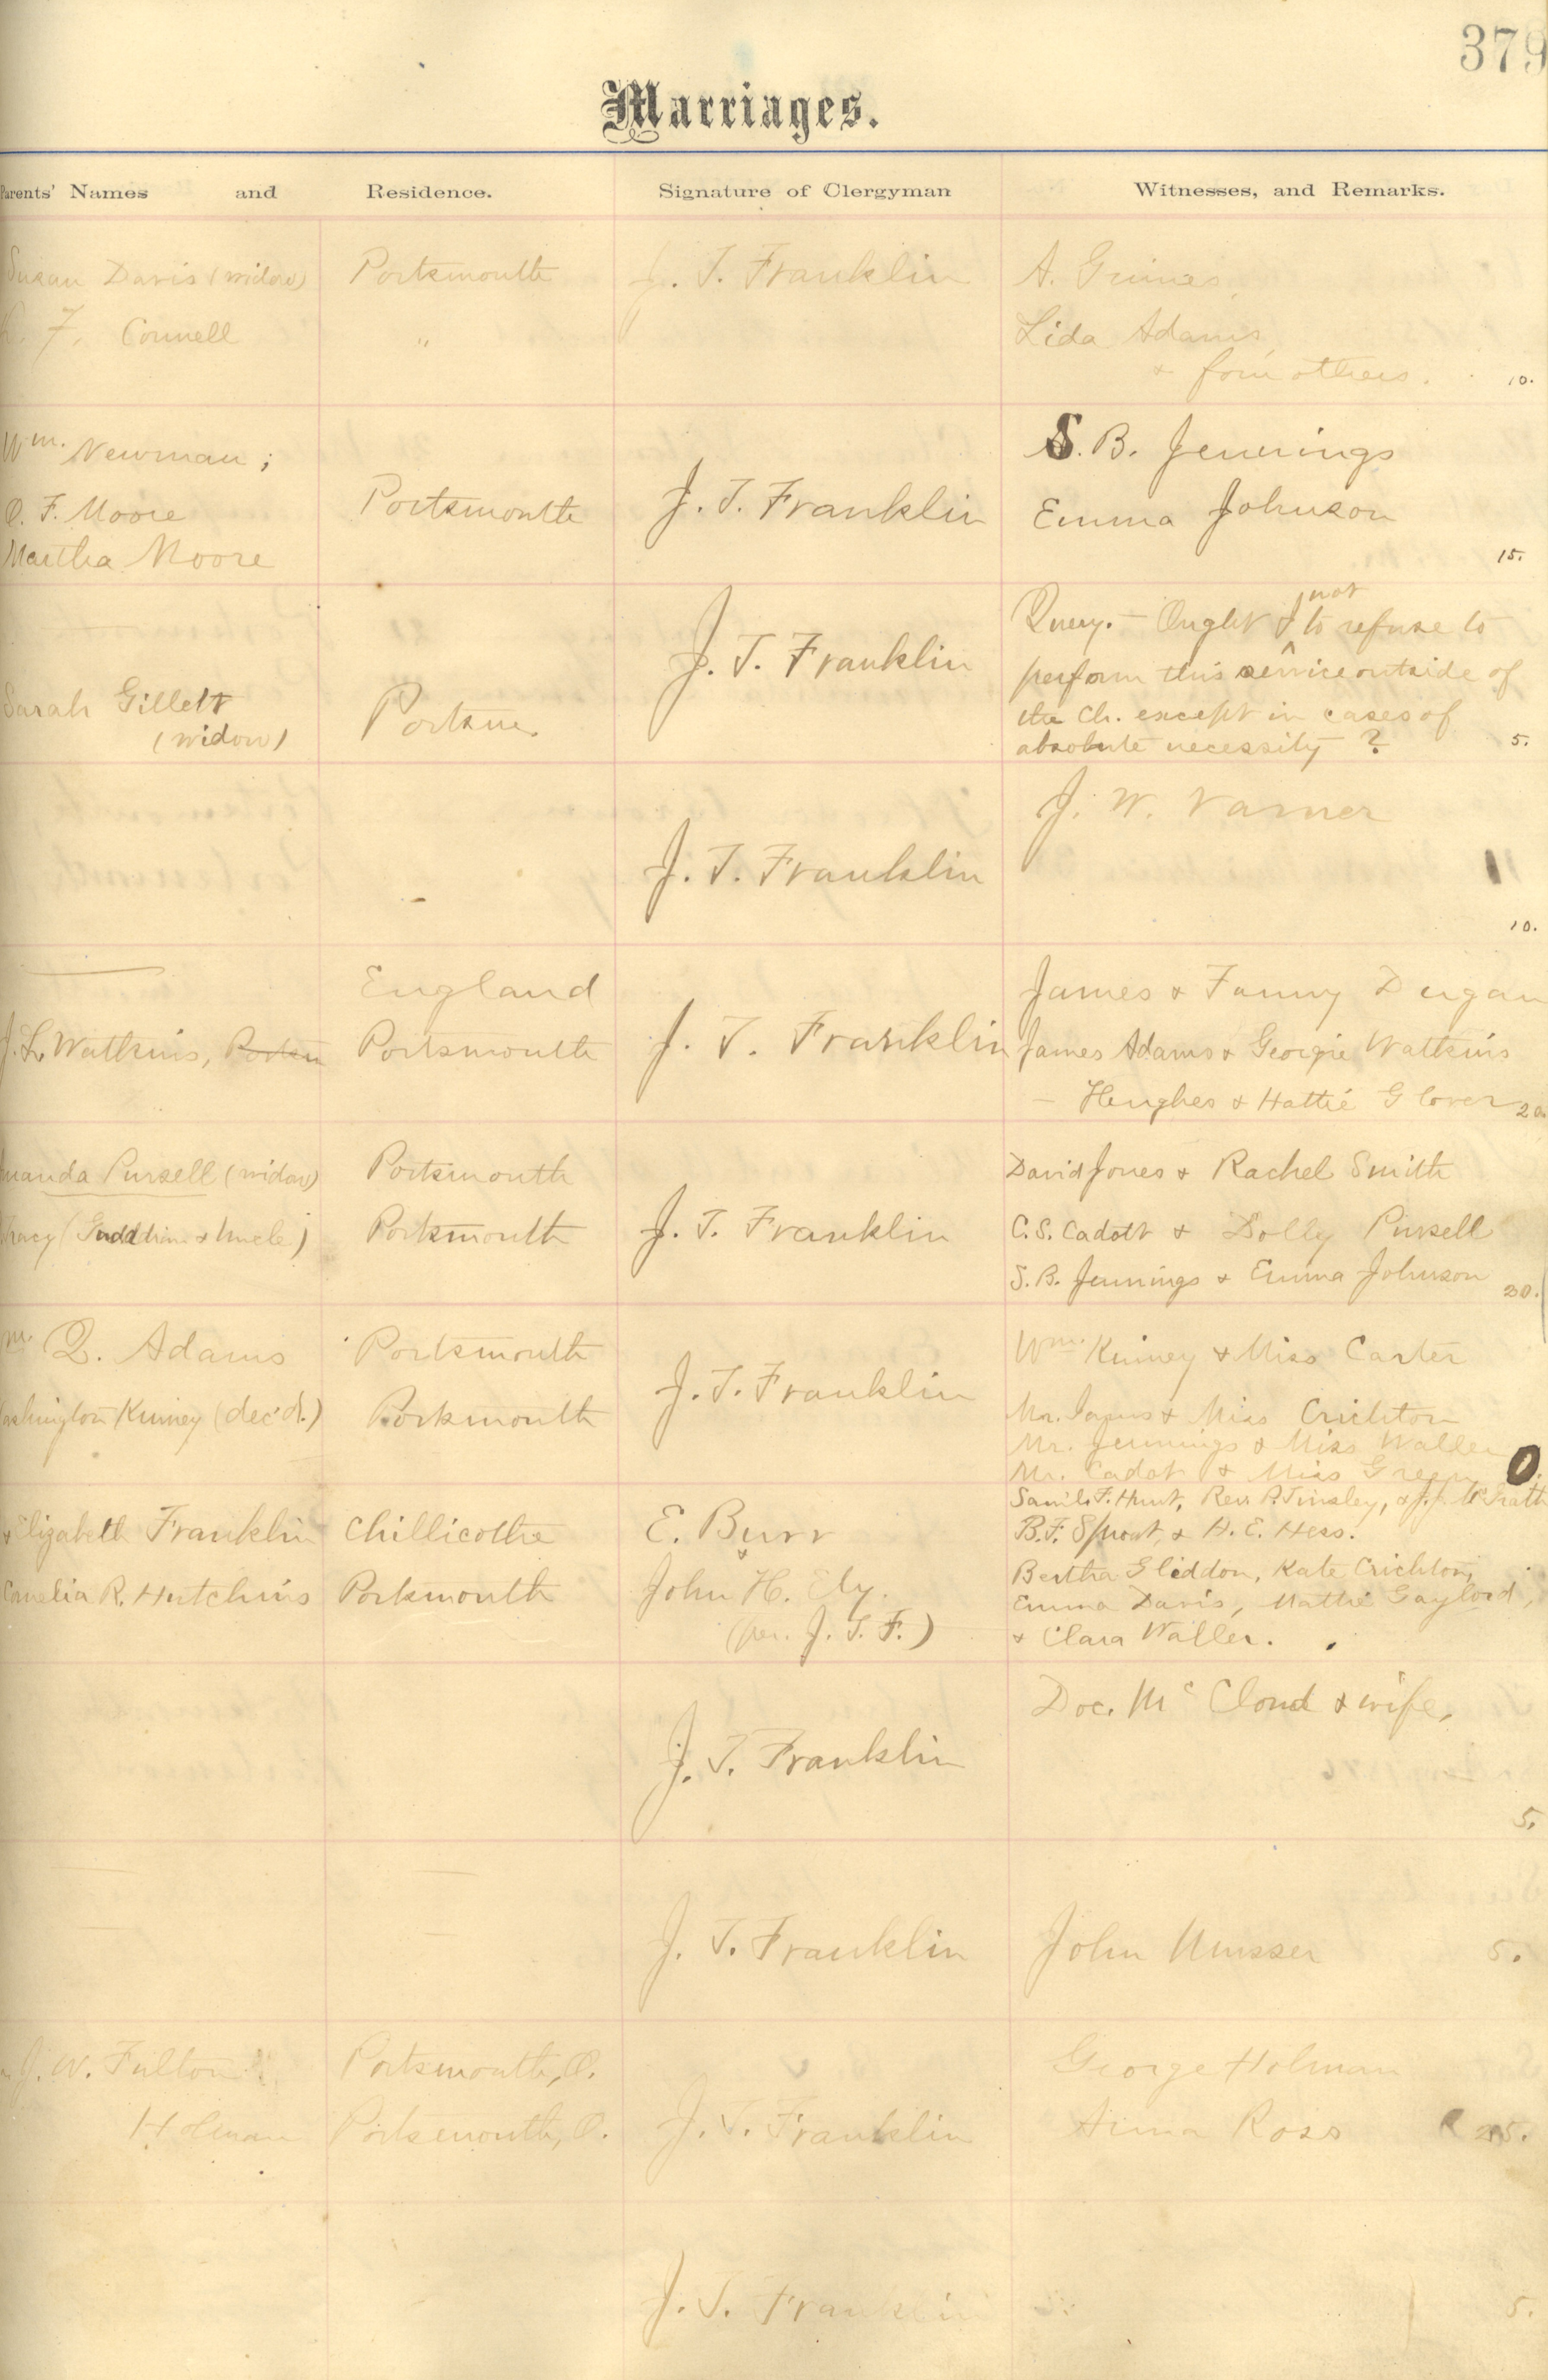 379
Marriages.
Parents' Names and Residence. Signature of Clergyman Witnesses, and Remarks.
Susan Davis (widow) Portsmouth J. T. Franklin A. Grimes,
F. Connell " Lida Adams,
& four others. 10.
Wm. Newman; S. B. Jennings
O. F. Moore Portsmouth J. T. Franklin Emma Johnson
Martha Moore 15.
J. T. Franklin Query. — Ought I not to refuse to
perform this service outside of
Sarah Gillett Portsm. the Ch. except in cases of
(widow) absolute necessity ? 5.
J. W. Varner
J. T. Franklin
10.
England James & Fanny Dugan
J. L. Watkins, Portsm Portsmouth J. T. Franklin James Adams & Georgie Watkins
— Hughes & Hattie Glover 20.
manda Pursell (widow) Portsmouth David Jones & Rachel Smith
Tracy ( & Uncle) Portsmouth J. T. Franklin C. S. Cadott & Dolly Pursell
S. B. Jennings & Emma Johnson 20.
m. Q. Adams Portsmouth Wm. Kinney & Miss Carter
ashington Kinney (dec'd.) Portsmouth J. T. Franklin Mr. & Miss Crichton
Mr. Jennings & Miss Waller
Mr. Cadot & Miss Green
Saml. F. Hunt, Rev. P. Tinsley, &
& Elizabeth Franklin Chillicothe E. Burr B. F. Sproat, & H. E. Hess.
&
Cornelia R. Hutchins Portsmouth John H. Ely. Bertha Gliddon, Kate Crichton,
Emma Davis, Mattie Gaylord,
(per. J. T. F.) & Clara Waller.
Doc. Mc Cloud & wife.
J. T. Franklin
5.
J. T. Franklin John Musser 5.
J. W. Fulton Portsmouth, O. George Holman
Holman Portsmouth, O. J. T. Franklin Anna Ross 25.
J. T. Franklin 5.